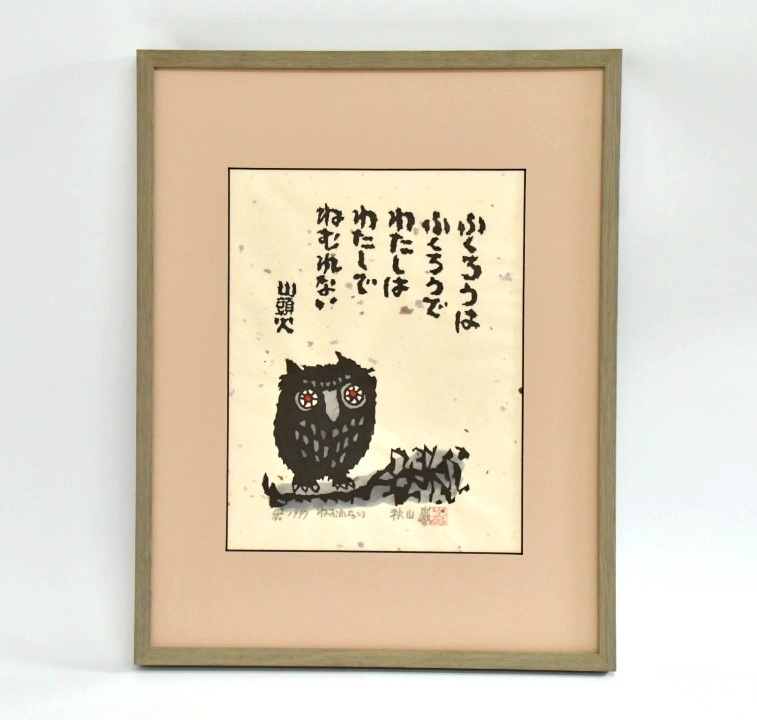 ふくろうは
ふくろうで
わたしは
わたしで
ねむれない
山頭火
1997 ねむれない 秋山巌